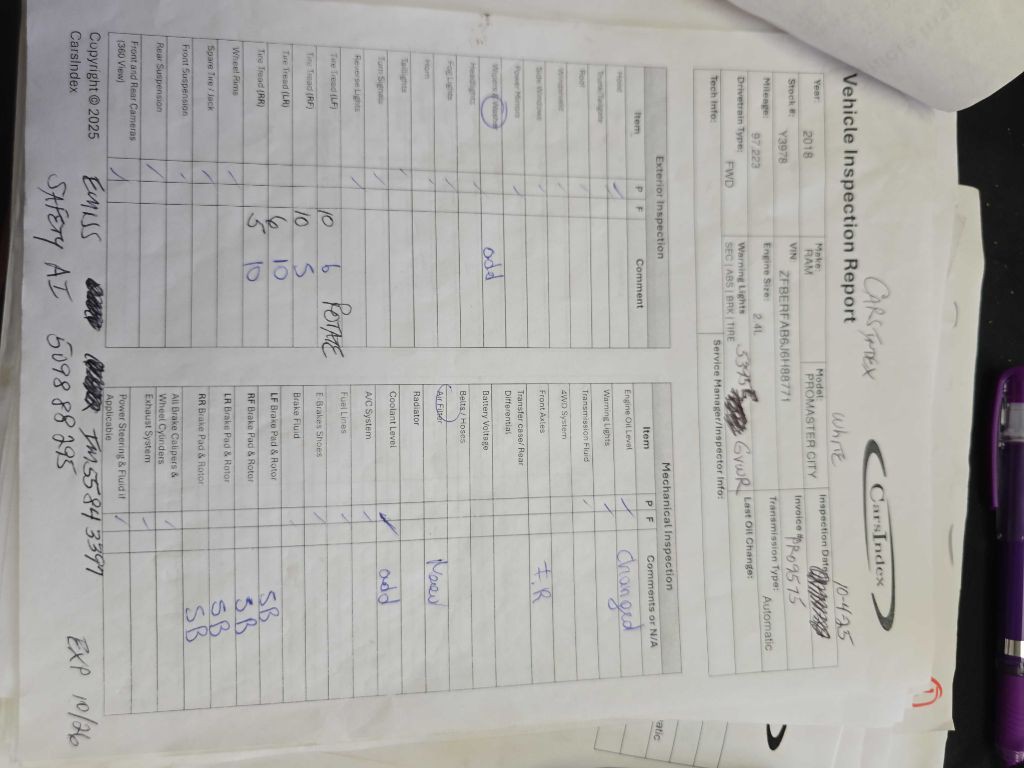 CARSINDEX
White
Vehicle Inspection Report
CarsIndex
Year: 2018
Make: RAM
Model: PROMASTER CITY
Inspection Date
10-4-25
Stock #: Y3978
VIN
Invoice # PR09575
Mileage: 97,223
Engine Size: 2.4L
Transmission Type: Automatic
Drivetrain Type: FWD
Warning Lights
SEC | ABS | BRK | TIRE
5375 GVWR
Last Oil Change:
Tech Info:
Service Manager/Inspector Info:
Exterior Inspection
Item P F Comment
Hood
Trunk/Tailgate
Roof
Windshield
Side Windows
Power Mirrors
Wipers / Washer add
Headlights
Fog Lights
Horn
Taillights
Turn Signals
Reverse Lights
Tire Tread (LF) 10 6 ROTATE
Tire Tread (RF) 10 5
Tire Tread (LR) 6 10
Tire Tread (RR) 5 10
Wheel Rims
Spare Tire / Jack
Front Suspension
Rear Suspension
Front and Rear Cameras
(360 View)
Mechanical Inspection
Item P F Comments or N/A
Engine Oil Level changed
Warning Lights
Transmission Fluid
4WD System
Front Axles I.R
Transfer case/ Rear
Differential
Battery Voltage
Belts/ Hoses
Air Filter New
Radiator
Coolant Level add
A/C System
Fuel Lines
E Brakes Shoes
Brake Fluid
LF Brake Pad & Rotor SB
RF Brake Pad & Rotor SB
LR Brake Pad & Rotor SB
RR Brake Pad & Rotor SB
All Brake Calipers &
Wheel Cylinders
Exhaust System
Power Steering & Fluid if
Applicable
Copyright © 2025
CarsIndex
EMISS
SAFETY AI 509888295
EXP 10/26